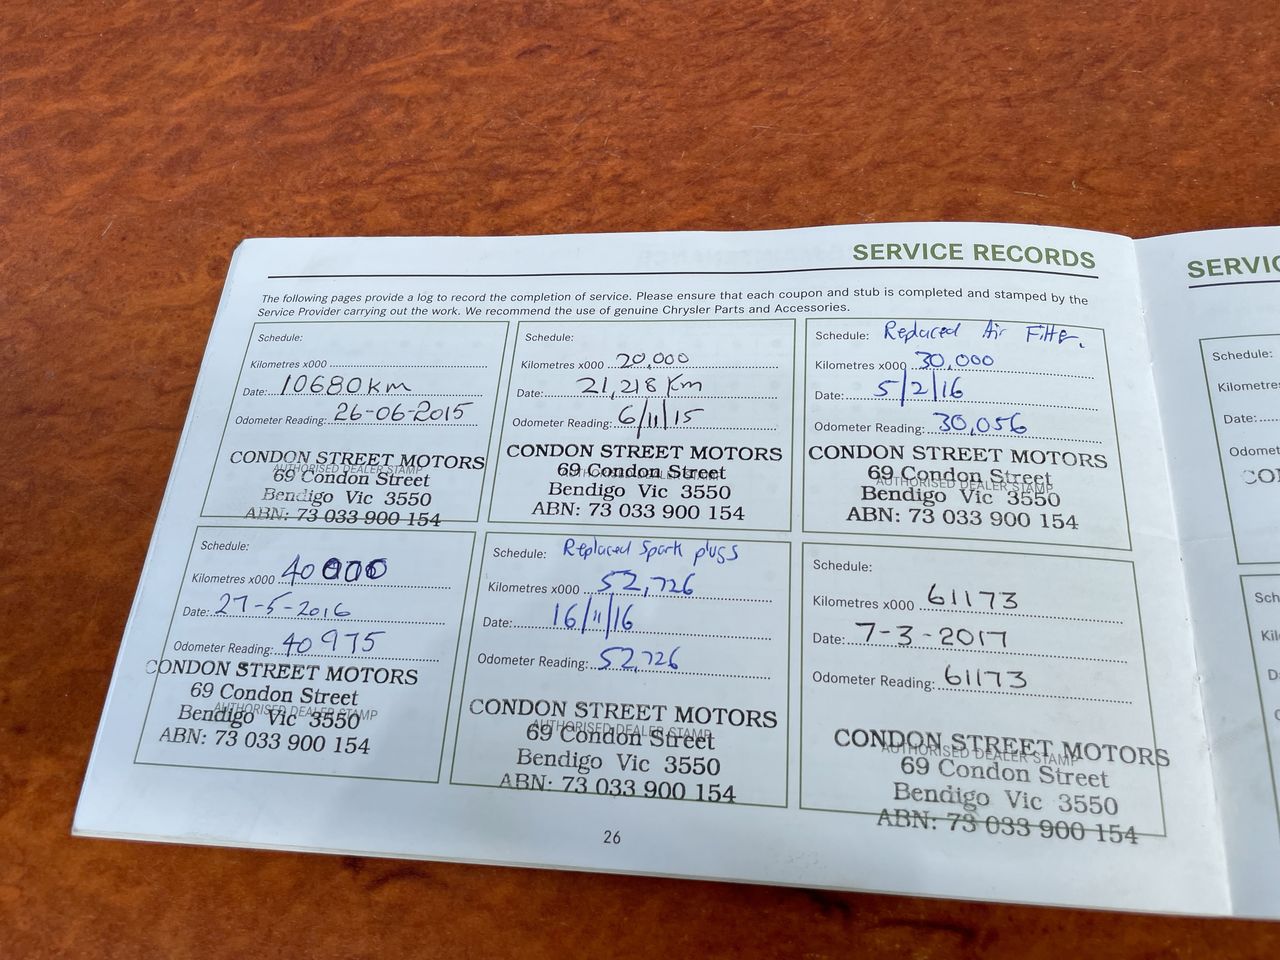 SERVICE RECORDS
The following pages provide a log to record the completion of service. Please ensure that each coupon and stub is completed and stamped by the
Service Provider carrying out the work. We recommend the use of genuine Chrysler Parts and Accessories.
Schedule:
Kilometres x000
Date: 10680km
Odometer Reading: 26-06-2015
AUTHORISED DEALER STAMP
CONDON STREET MOTORS
69 Condon Street
Bendigo Vic 3550
ABN: 73 033 900 154
Schedule:
Kilometres x000 20,000
Date: 21,218 Km
Odometer Reading: 6/11/15
CONDON STREET MOTORS
69 Condon Street
Bendigo Vic 3550
ABN: 73 033 900 154
Schedule: Replaced Air Filter.
Kilometres x000 30,000
Date: 5/2/16
Odometer Reading: 30,056
AUTHORISED DEALER STAMP
CONDON STREET MOTORS
69 Condon Street
Bendigo Vic 3550
ABN: 73 033 900 154
Schedule:
Kilometres x000 40000
Date: 27-5-2016
Odometer Reading: 40975
AUTHORISED DEALER STAMP
CONDON STREET MOTORS
69 Condon Street
Bendigo Vic 3550
ABN: 73 033 900 154
Schedule: Replaced Spark plugs
Kilometres x000 52,726
Date: 16/11/16
Odometer Reading: 52,726
AUTHORISED DEALER STAMP
CONDON STREET MOTORS
69 Condon Street
Bendigo Vic 3550
ABN: 73 033 900 154
Schedule:
Kilometres x000 61173
Date: 7-3-2017
Odometer Reading: 61173
AUTHORISED DEALER STAMP
CONDON STREET MOTORS
69 Condon Street
Bendigo Vic 3550
ABN: 73 033 900 154
26
Schedule:
Date: